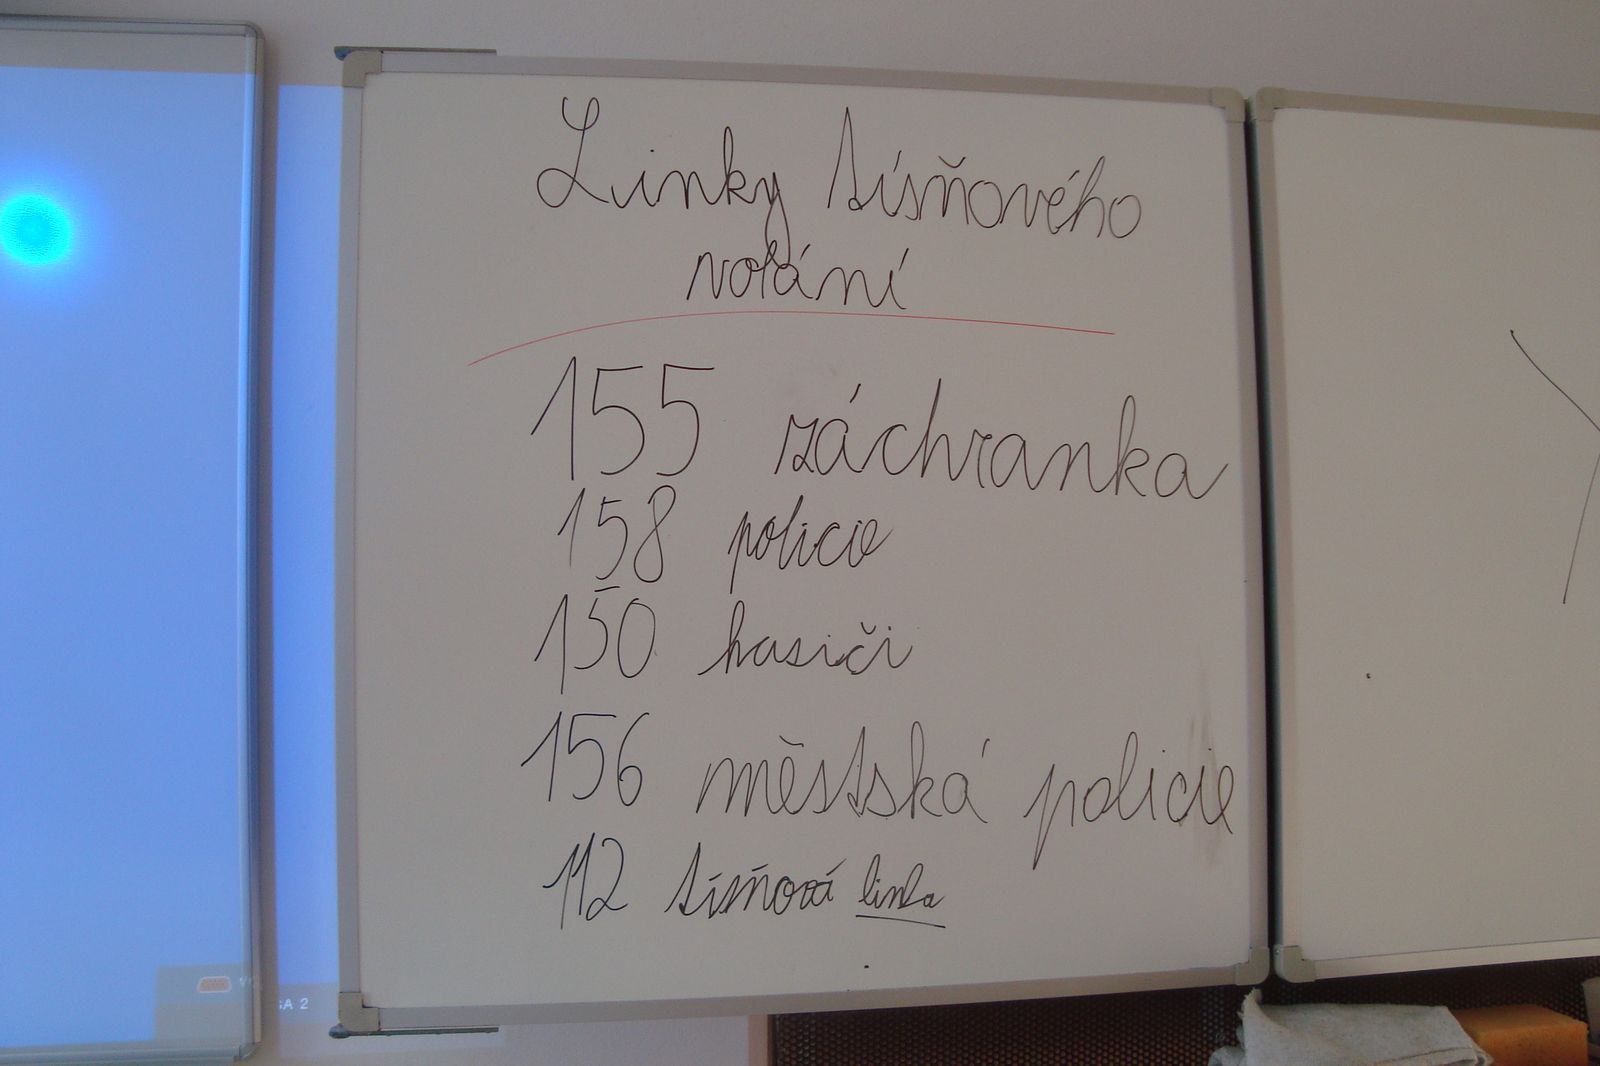 Linky tísňového
volání
155 záchranka
158 policie
150 hasiči
156 městská policie
112 tísňová linka
GA 2